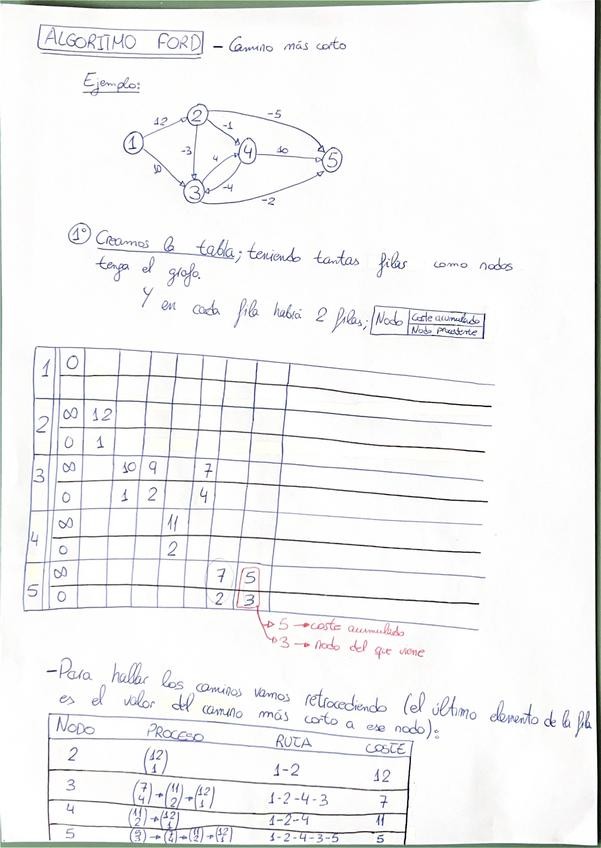 ALGORITMO FORD - Camino más corto
Ejemplo:
12 -5
2
-1
1 -3 4 10 5
10 4 -4
3 -2
1º Creamos la tabla; teniendo tantas filas como nodos
tenga el grafo.
Y en cada fila habrá 2 filas; Nodo Coste acumulado
Nodo precedente
1 0
2 ∞ 12
0 1
3 ∞ 10 9 7
0 1 2 4
4 ∞ 11
0 2
5 ∞ 7 5
0 2 3
5 → coste acumulado
3 → nodo del que viene
- Para hallar los caminos vamos retrocediendo (el último elemento de la fila
es el valor del camino más corto a ese nodo):
NODO PROCESO RUTA COSTE
2 (12 1) 1-2 12
3 (7 4) → (11 2) → (12 1) 1-2-4-3 7
4 (11 2) → (12 1) 1-2-4 11
5 → (11 2) → (12 1) 1-2-4-3-5 5